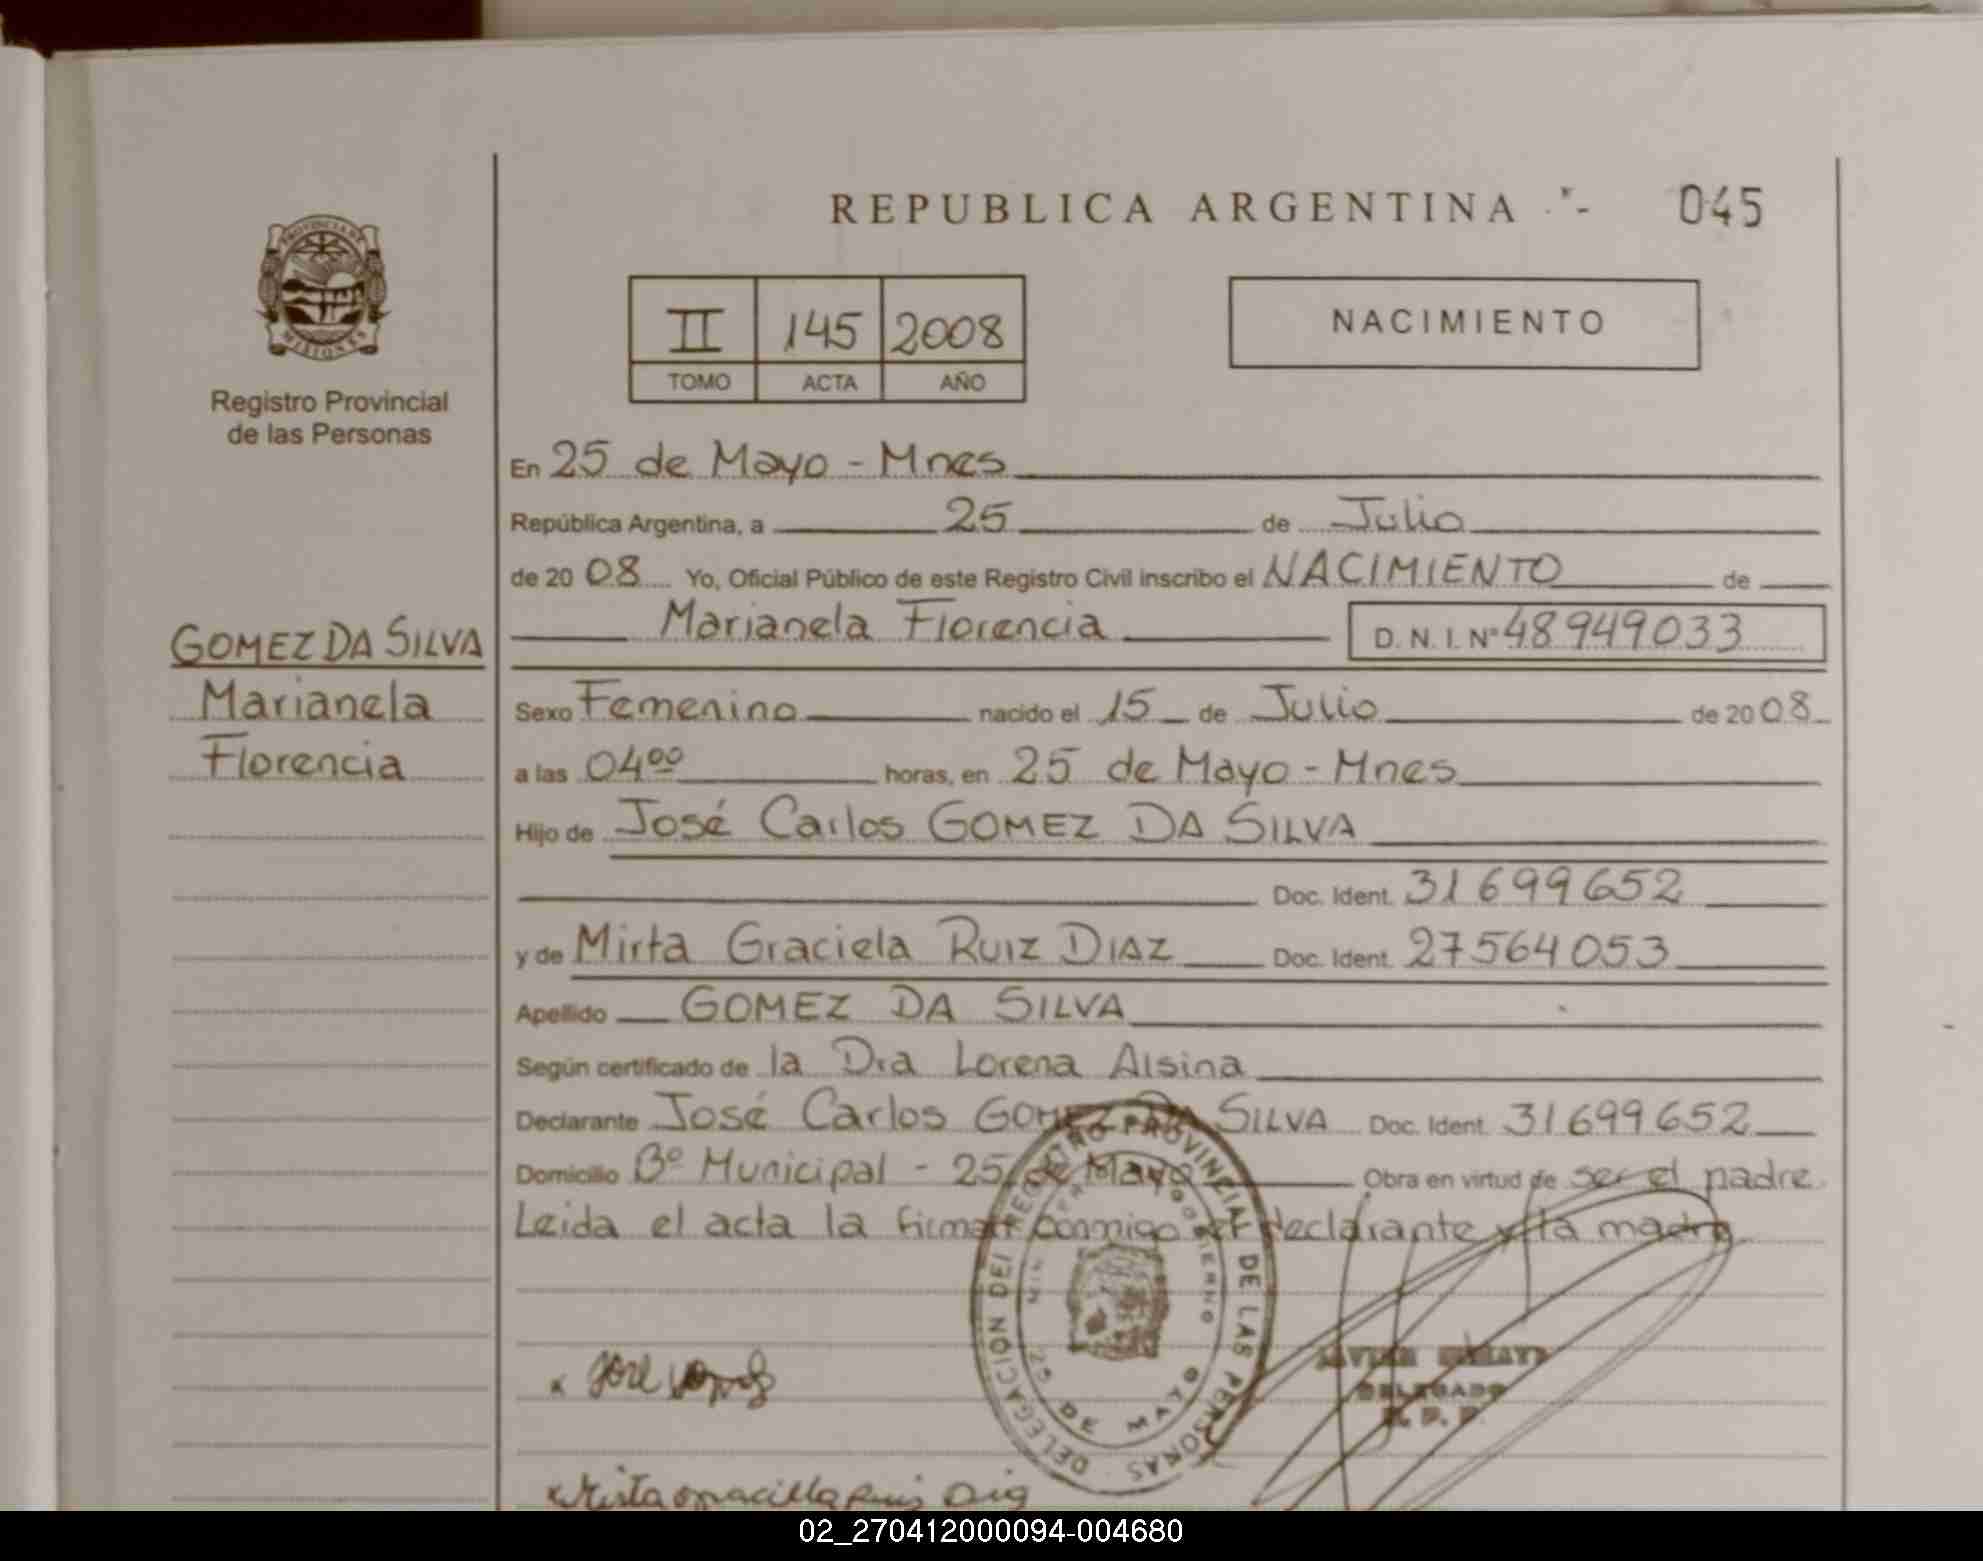 REPUBLICA ARGENTINA
045
PROVINCIA DE
MISIONES
Registro Provincial
de las Personas
II 145 2008
TOMO ACTA AÑO
NACIMIENTO
En 25 de Mayo - Mnes
República Argentina, a 25 de Julio
de 20 08 Yo, Oficial Público de este Registro Civil inscribo el NACIMIENTO de
Marianela Florencia D. N. I. Nº 48949033
GOMEZ DA SILVA
Marianela
Florencia
Sexo Femenino nacido el 15 de Julio de 20 08
a las 04⁰⁰ horas, en 25 de Mayo - Mnes
Hijo de José Carlos GOMEZ DA SILVA
Doc. Ident. 31699652
y de Mirta Graciela RUIZ DIAZ Doc. Ident. 27564053
Apellido GOMEZ DA SILVA
Según certificado de la Dra Lorena Alsina
Declarante José Carlos GOMEZ DA SILVA Doc. Ident. 31699652
Domicilio Bº Municipal - 25 de Mayo Obra en virtud de ser el padre
Leida el acta la firman conmigo el declarante y la madre
DELEGACION DEL REGISTRO PROVINCIAL DE LAS PERSONAS
GOBIERNO
25 DE MAYO
DELEGADO
R. P. P.
02_270412000094-004680